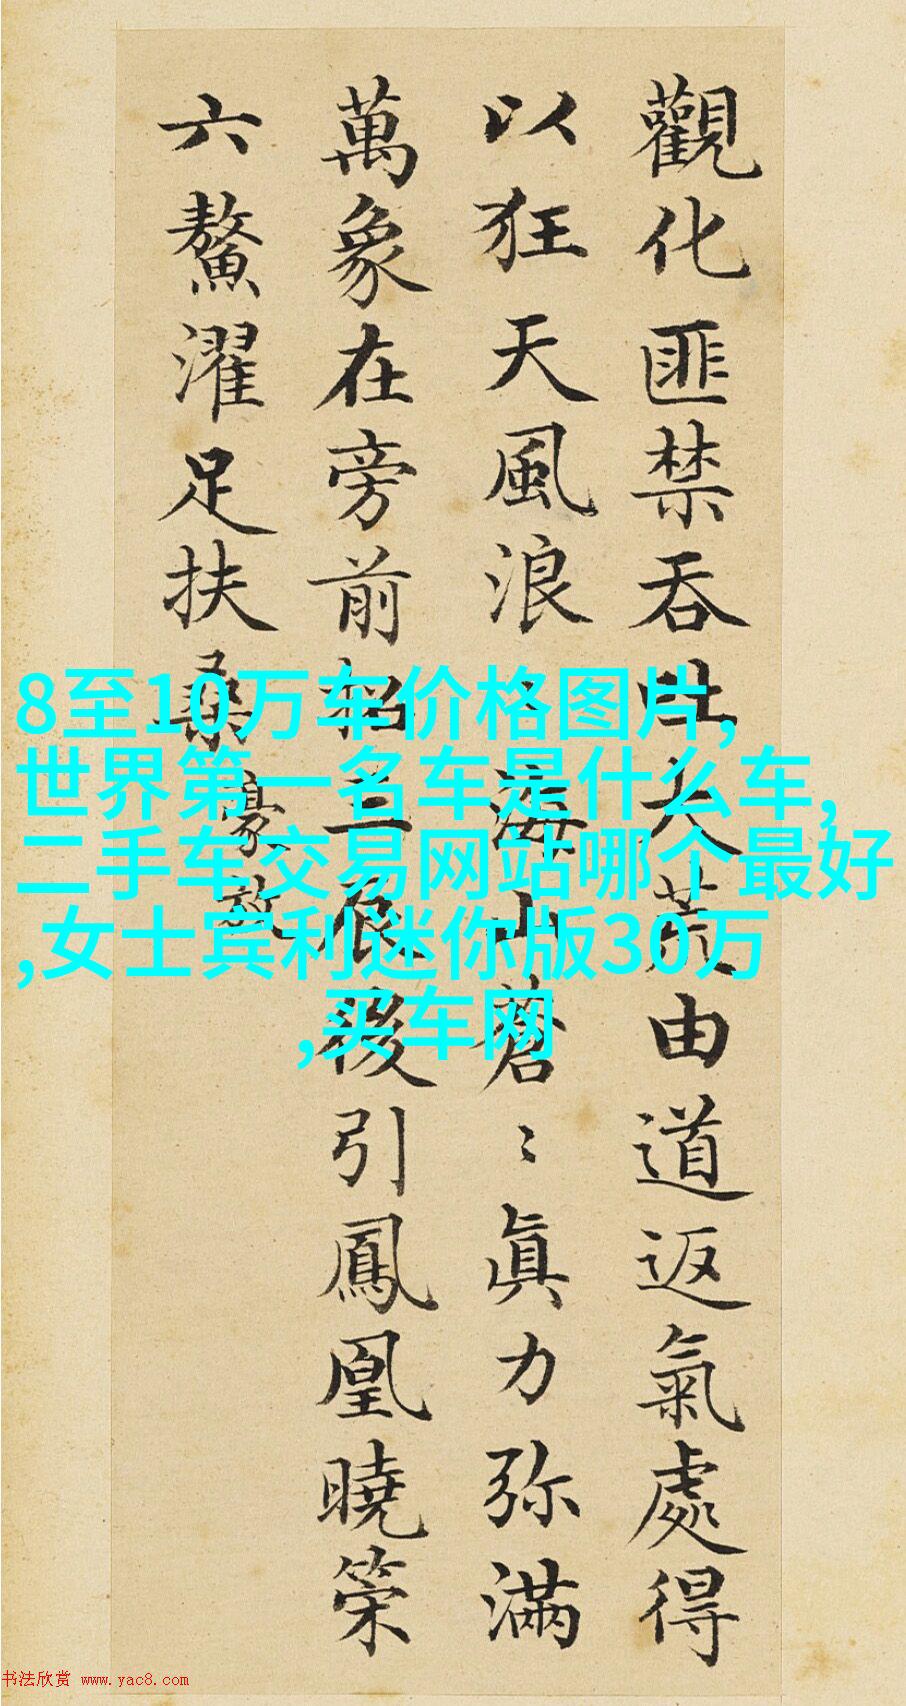 觀化匪禁吞吐大荒由道返氣處得
以狂天風浪〻海山蒼〻眞力弥滿
萬象在旁前招三辰後引鳳凰曉策
六鰲濯足扶桑 豪放
8至10万车价格图片,
世界第一名车是什么车,
二手车交易网站哪个最好
,女士宾利迷你版30万
,买车网
书法欣赏 www.yac8.com